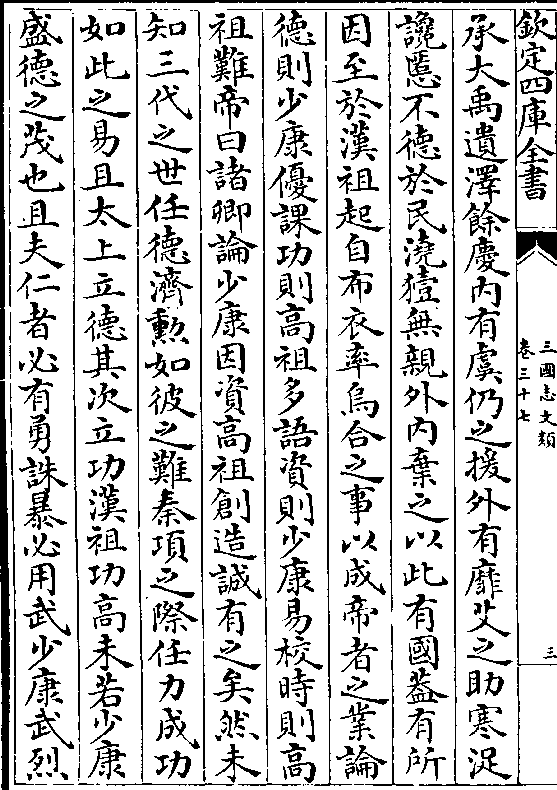 欽定四庫全書
三國志文類
卷三十七
三
承大禹遺澤餘慶内有虞仍之援外有靡艾之助寒浞
讒慝不德於民澆豷無親外内棄之以此有國蓋有所
因至於漢祖起自布衣率烏合之事以成帝者之業論
德則少康優課功則高祖多語資則少康易校時則高
祖難帝曰諸卿論少康因資高祖創造誠有之矣然未
知三代之世任德濟勲如彼之難秦項之際任力成功
如此之易且太上立德其次立功漢祖功高未若少康
盛德之茂也且夫仁者必有勇誅暴必用武少康武烈